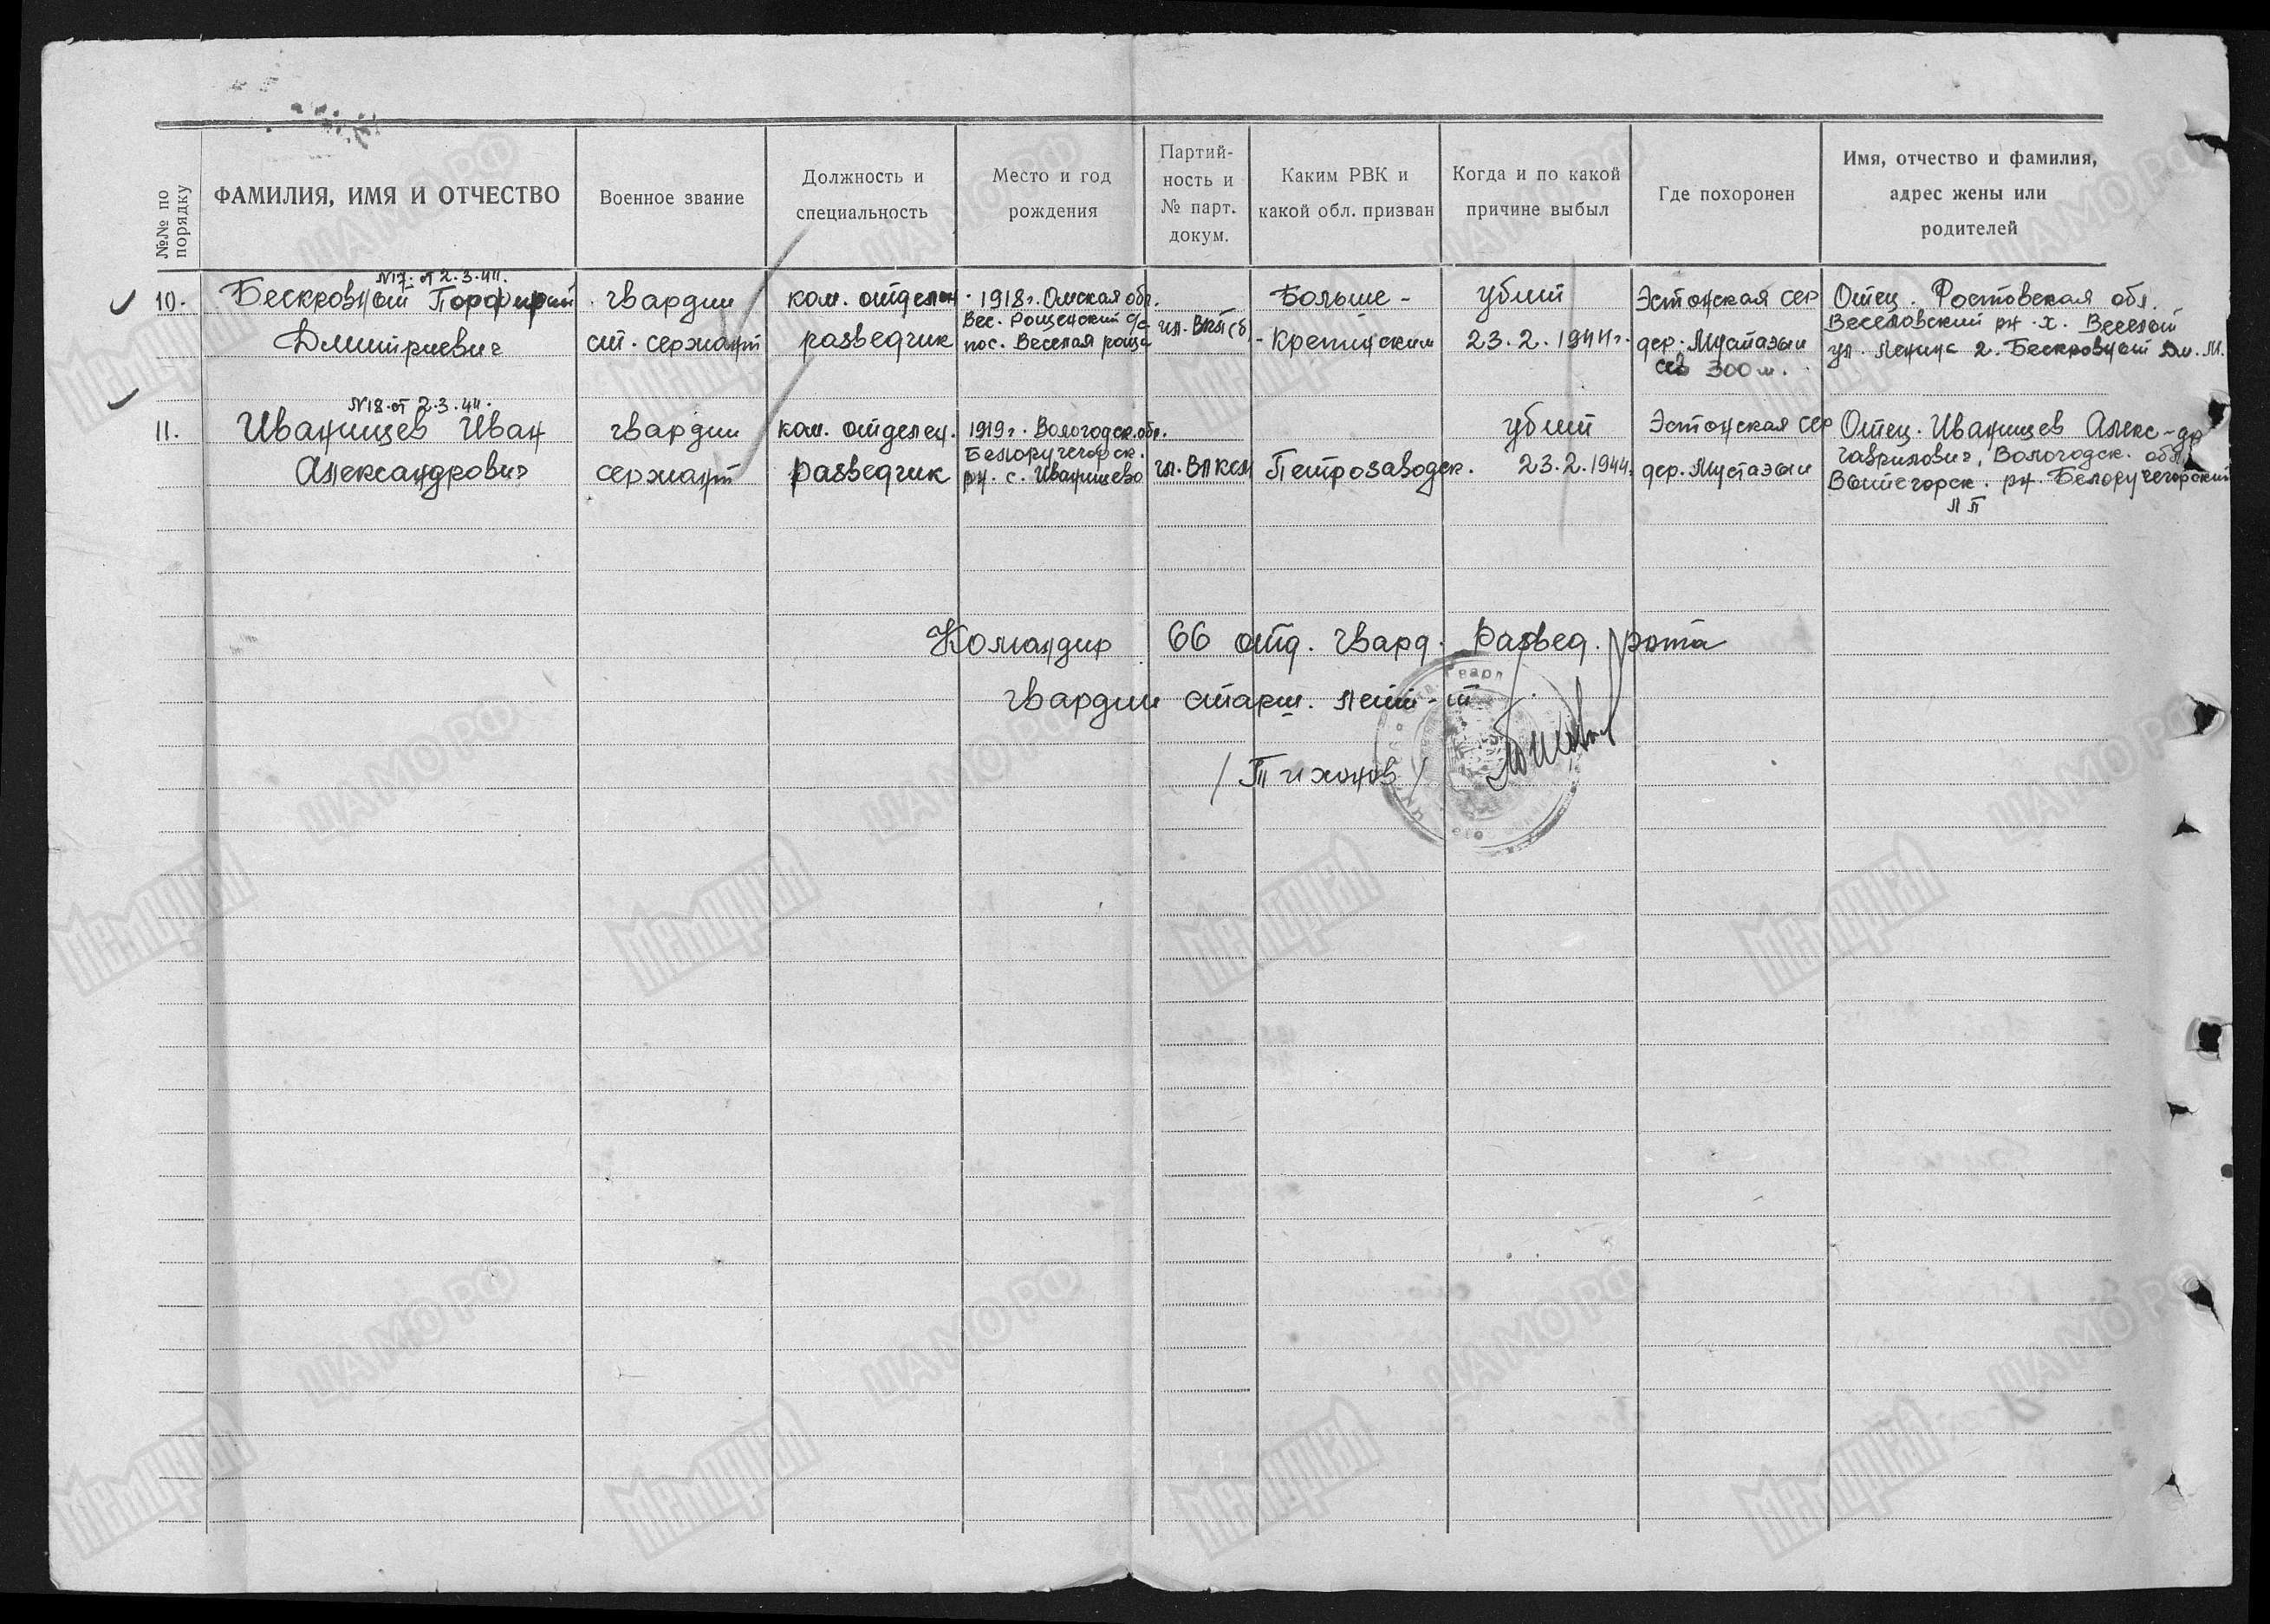 №№ по порядку
ФАМИЛИЯ, ИМЯ И ОТЧЕСТВО
Военное звание
Должность и
специальность
Место и год
рождения
Партий-
ность и
№ парт.
докум.
Каким РВК и
какой обл. призван
Когда и по какой
причине выбыл
Где похоронен
Имя, отчество и фамилия,
адрес жены или
родителей
№17. от 2.3.44.
10.
Бескровный Порфирий
Дмитриевич
гвардии
ст. сержант
ком. отделен.
разведчик
1918 г. Омская обл.
Вес. Рощенский с/с
пос. Веселая роща
чл. ВКП(б)
Больше-
-Крепинским
убит
23.2.1944г.
Эстонская ССР
дер. Мустаэыи
сев 300 м.
Отец. Ростовская обл.
Веселовский рн. х. Веселый
ул. Ленина 2. Бескровный Дм. М.
№18. от 2.3.44.
11.
Иванищев Иван
Александрович
гвардии
сержант
ком. отделен.
разведчик
1919 г. Вологодск. обл.
Белоручейск.
рн. с. Иванищево
чл. ВЛКСМ
Петрозаводск.
убит
23.2.1944г.
Эстонская ССР
дер. Мустаэыи
Отец. Иванищев Алекс-др
Гаврилович, Вологодск. обл.
Вытегорск. рн. Белоручегорский
ЛП
Командир 66 отд. гвард. Развед. рота
гвардии старш. лейт-т
/Тихонов/
ЦАМО РФ
Мемориал